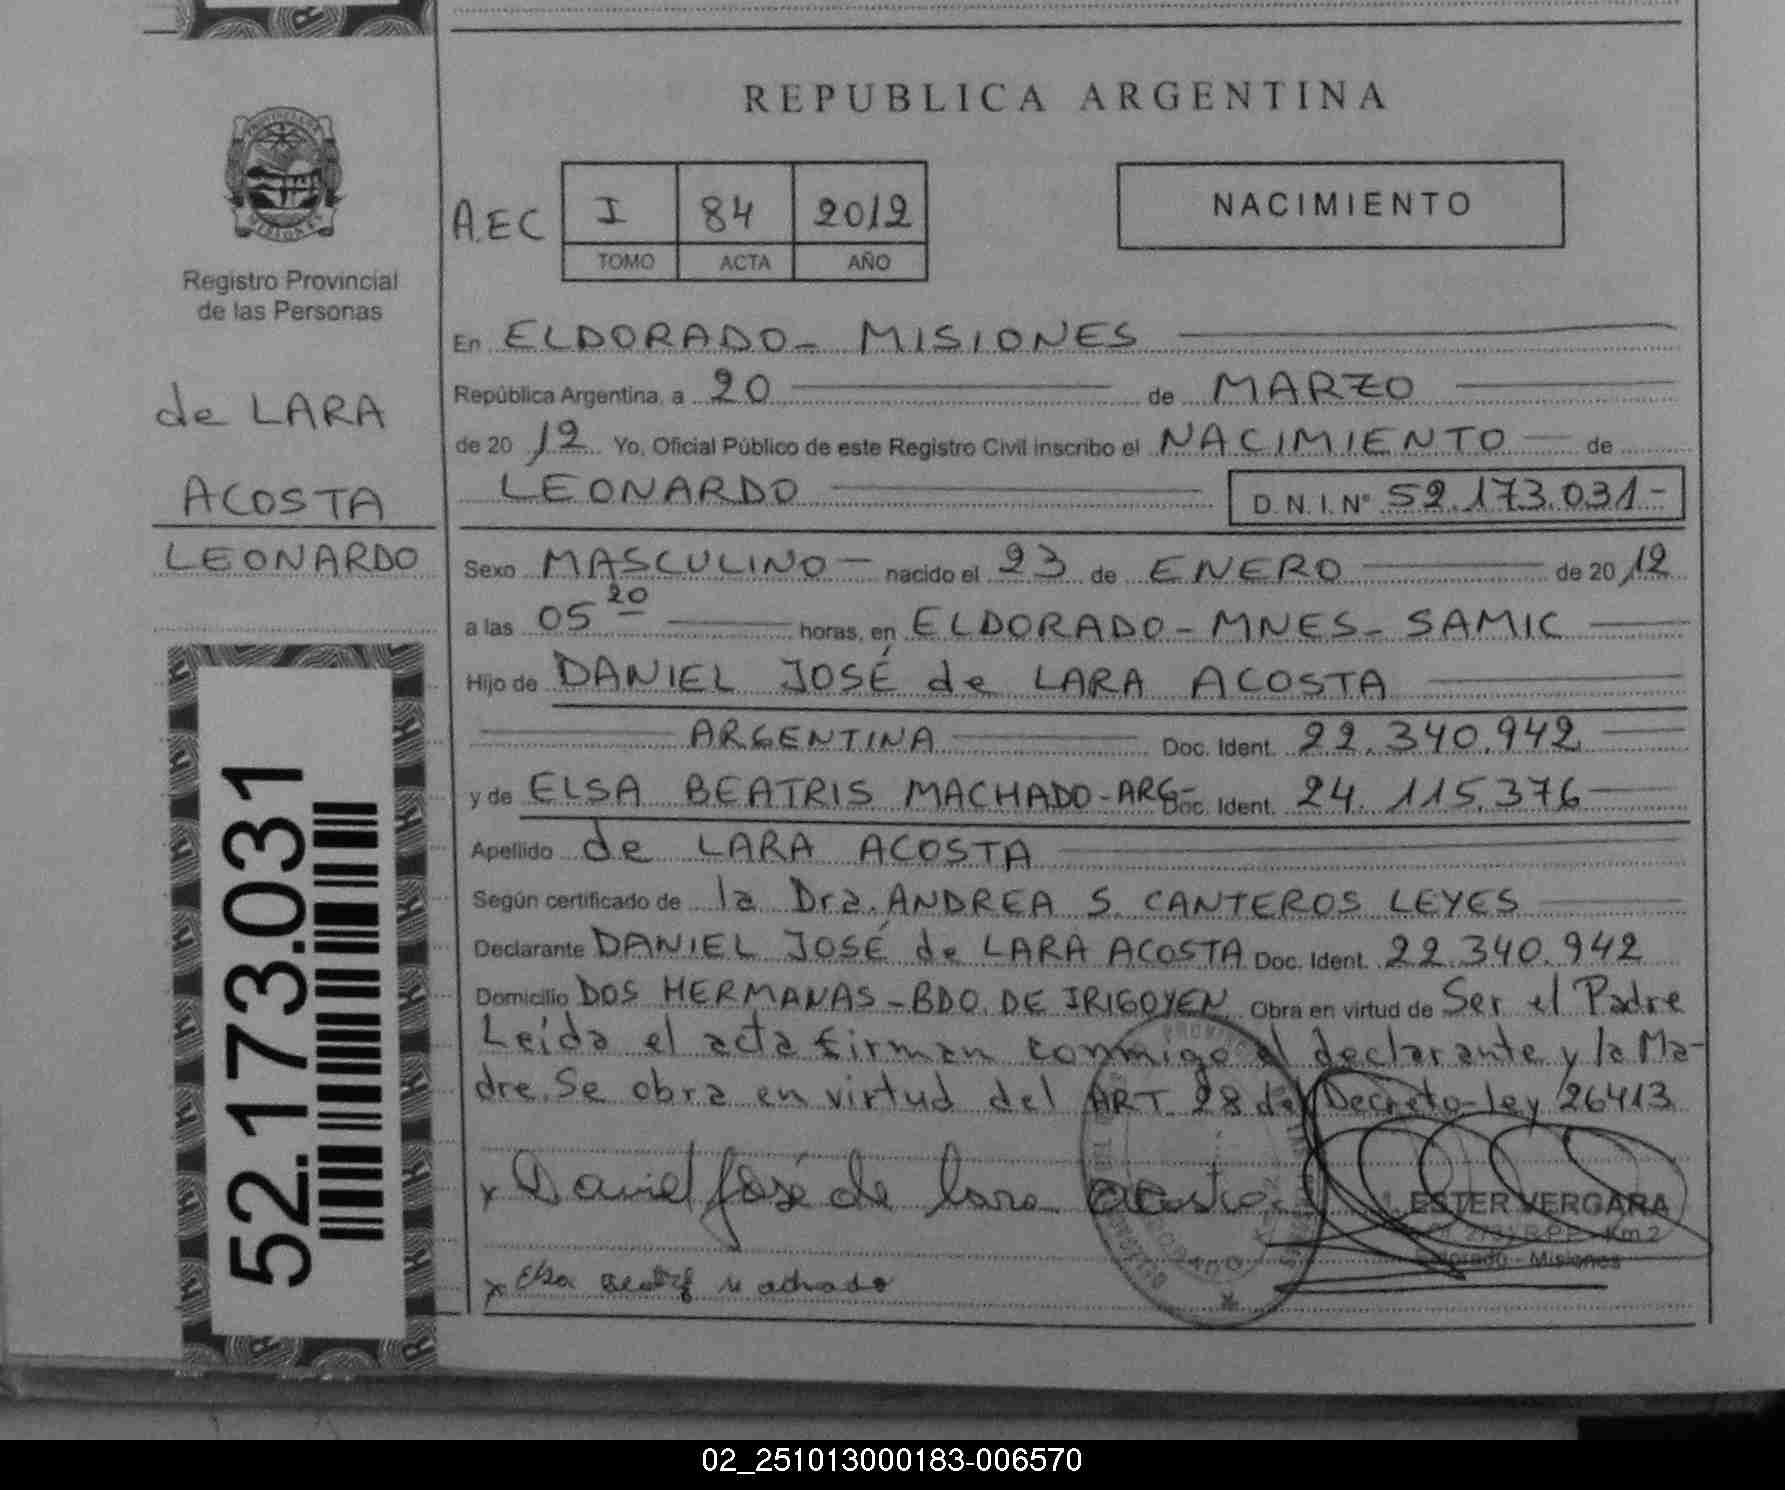 REPUBLICA ARGENTINA
A.EC I 84 2012
TOMO ACTA AÑO
NACIMIENTO
Registro Provincial
de las Personas
de LARA
ACOSTA
LEONARDO
52.173.031
En ELDORADO - MISIONES
República Argentina, a 20 de MARZO
de 20 12 Yo, Oficial Público de este Registro Civil inscribo el NACIMIENTO de
LEONARDO D.N.I. Nº 52.173.031-
Sexo MASCULINO nacido el 23 de ENERO de 20 12
a las 05 20 horas, en ELDORADO - MNES - SAMIC
Hijo de DANIEL JOSÉ de LARA ACOSTA
ARGENTINA Doc. Ident. 22.340.942
y de ELSA BEATRIS MACHADO - ARG- Doc. Ident. 24.115.376
Apellido de LARA ACOSTA
Según certificado de la Dra. ANDREA S. CANTEROS LEYES
Declarante DANIEL JOSÉ de LARA ACOSTA Doc. Ident. 22.340.942
Domicilio DOS HERMANAS - BDO. DE IRIGOYEN Obra en virtud de Ser el Padre
Leída el acta firman conmigo el declarante y la Ma-
dre. Se obra en virtud del ART. 28 del Decreto-ley 26413
x Daniel José de Lara Acosta
ESTER VERGARA
Km 2
Eldorado - Misiones
x Elsa Beatris Machado
02_251013000183-006570